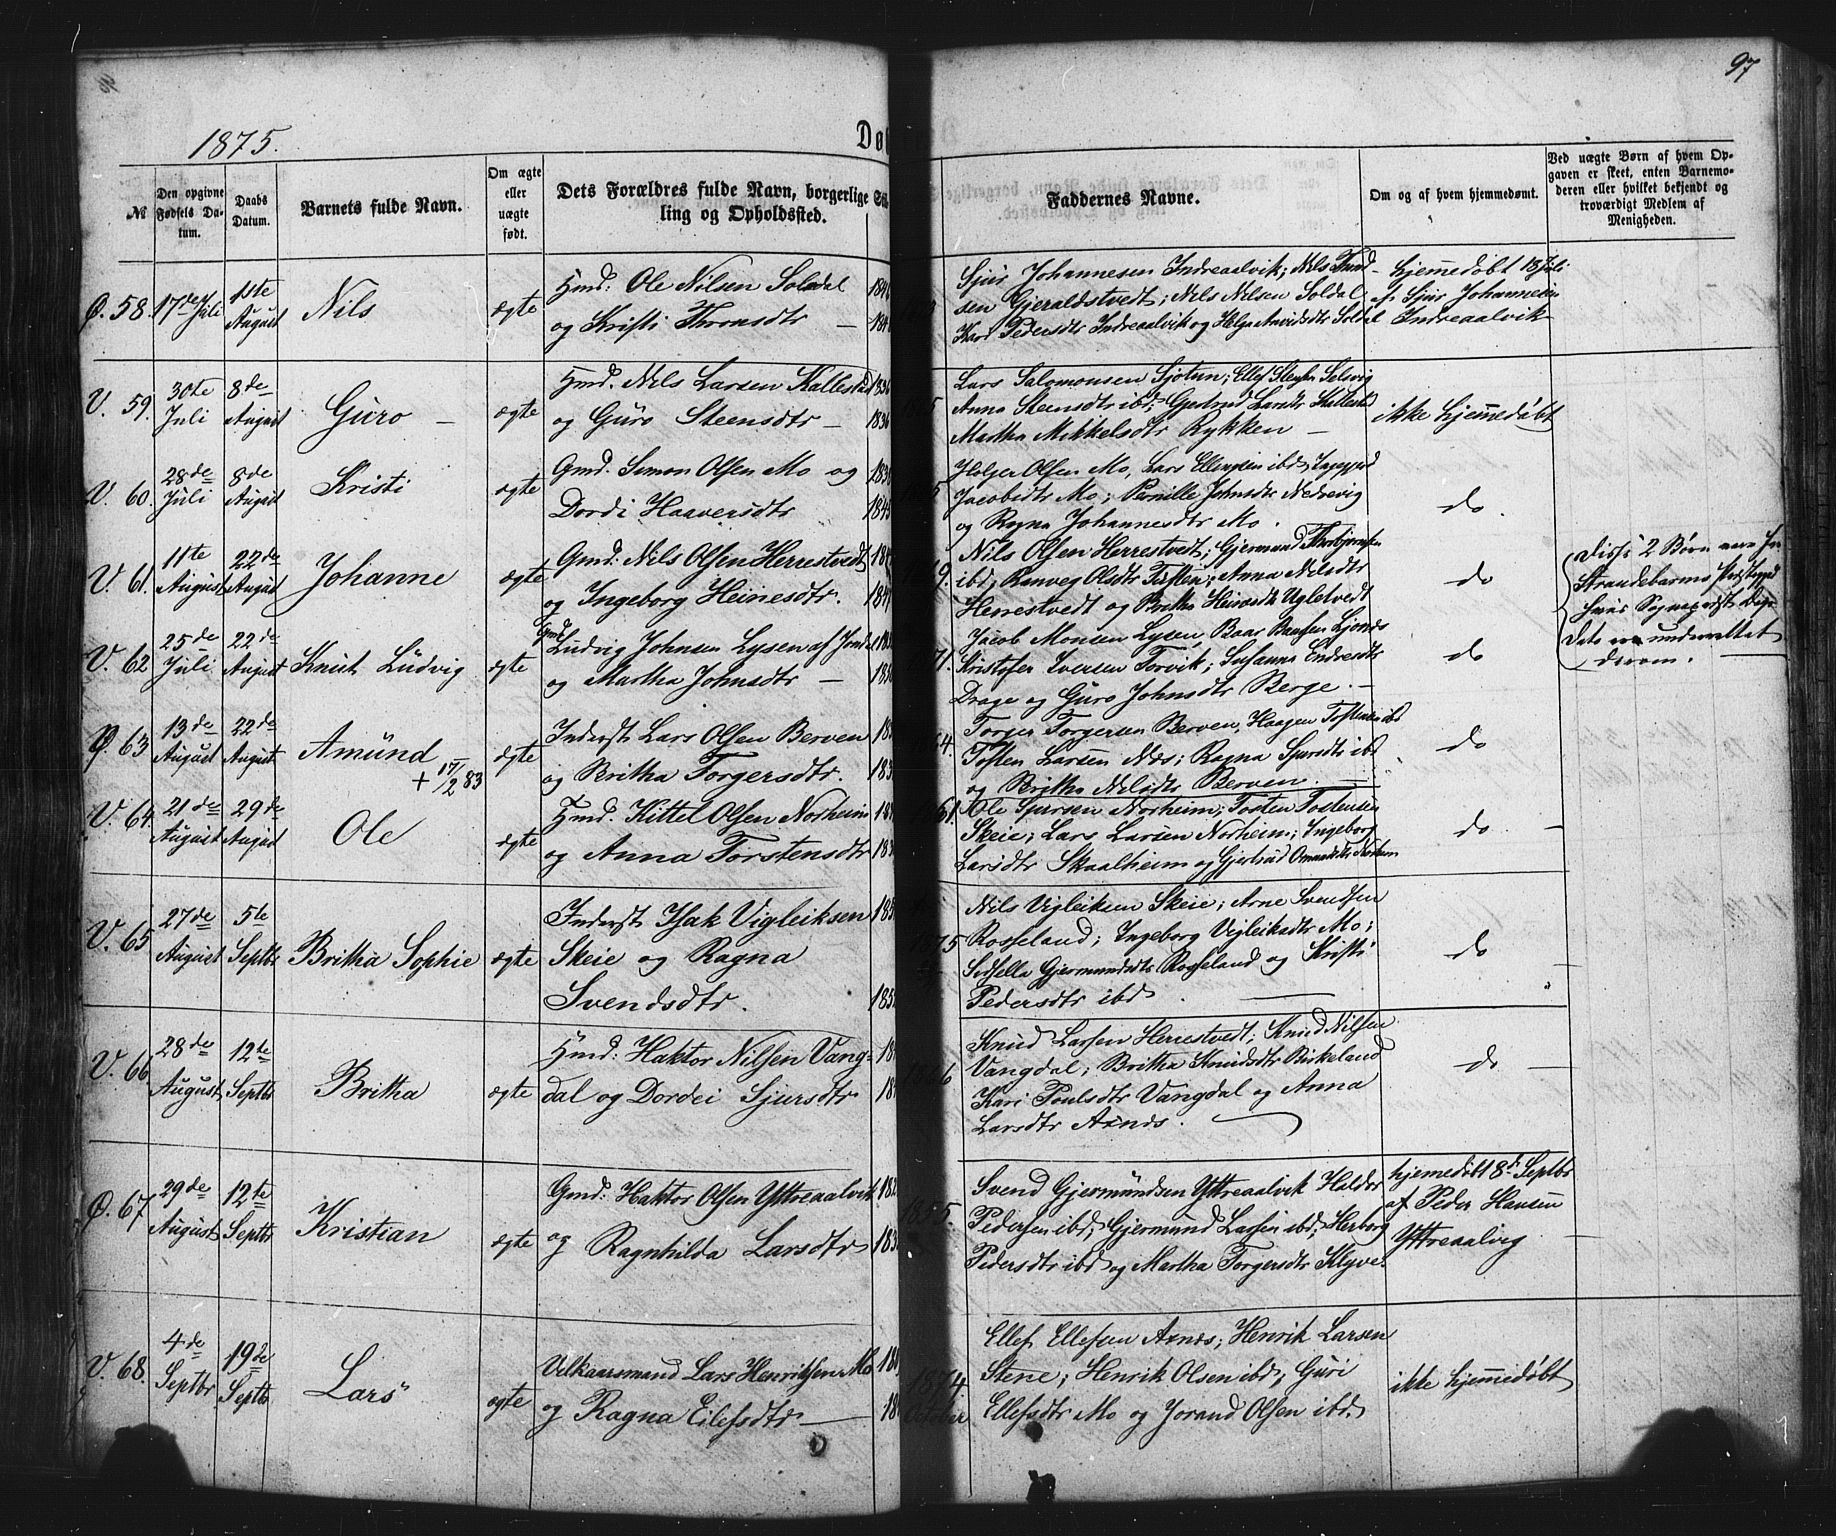 97
1875.
Dø
№
Den opgivne Fødsels Datum.
Daabs Datum.
Barnets fulde Navn.
Om ægte eller uægte født.
Dets Forældres fulde Navn, borgerlige
ling og Opholdssted.
Faddernes Navne.
Om og af hvem hjemmedøbt.
Ved uægte Børn af hvem Opgaven er skeet, enten Barnemoderen eller hvilket bekjendt og troværdigt Medlem af Menigheden.
Ø. 58. 17de Juli 1ste August Nils ægte
Hmd: Ole Nilsen Soldal
og Kristi Thomsdtr —
Sjur Johannesen Indreaalvik; Nils
sen Gjeraldstvedt; Nils Nilsen Soldal
Pedersdtr Indreaalvik og Helga Soldal
hjemmedøbt 18 Juli
af Sjur Johannesen
Indreaalvik
V. 59. 30te Juli 8de August Guro — ægte
Hmd. Nils Larsen Kallestad 1836
og Guro Steensdtr — 1836
Lars Salomonsen Sjotun; Ellef Selsvig
Anna Steensdtr ibd; Gjertrud Larsdtr
Martha Mikkelsdtr Rykken —
ikke hjemmedøbt
V. 60. 28de Juli 8de August Kristi ægte
Gmd. Simon Olsen Mo og
Dordi Haaversdtr
Holger Olsen Mo, Lars Ellingsen ibd;
Jacobsdtr Mo; Pernille Johnsdtr Nedrevig
og Ragna Johannesdtr Mo.
do.
V. 61. 11te August 22de August Johanne ægte
Gmd. Nils Olsen Herrestvedt
og Ingeborg Heinesdtr.
Nils Olsen Herrestvedt; Gjermund Thorbjørnsen
ibd; Ranveg Olsdtr; Anna Nilsdtr
Herrestvedt og Britha Ugletvedt
do
Disse 2 Børn
Strandebarms
dets underrettet
derom. —
V. 62 25de Juli 22de August Knut Ludvig ægte
Gmd Ludvig Johnsen Lysen af
og Martha Johnsdtr —
Jacob Monsen Lysen, Baar Ljones
Kristofer Iversen Torvik; Susanna Endresdtr
Drage og Guro Johnsdtr Berge. —
do
Ø. 63 13de August 22de August Amund ægte
+ 17/2 83
Inderst Lars Olsen Berven
og Britha Torgersdtr.
Torger Torgersen Berven, Haagen
Tosten Larsen Næs; Ragna Sjursdtr ibd
og Britha Nilsdtr Berven. —
do
V. 64. 21de August 29de August Ole ægte
Hmd. Kittel Olsen Norheim
og Anna Torstensdtr
1861. Ole Sjursen Norheim; Tosten Tostensen
Skeie; Lars Larsen Norheim; Ingeborg
Larsdtr Skaalheim og Gjertrud
do. —
V. 65 27de August 5te Septbr Britha Sophie ægte
Inderst Isak Vigleiksen
Skeie og Ragna
Svendsdtr.
Nils Vigleiksen Skeie; Arne Svendsen
Rosseland; Ingeborg Vigleiksdtr Mo;
Gjermundsdtr Rosseland og Kristi
Pedersdtr ibd. —
do —
V. 66 28de August 12te Septbr Britha ægte
Hmd: Haktor Nilsen Vang-
dal og Dordei Sjursdtr
Knud Larsen Herrestvedt; Knud Nilsen
Vangdal; Britha Knudsdtr Birkeland
Kari Poulsdtr Vangdal og Anna
Larsdtr Axnes.
do —
Ø. 67. 29de August 12te Septbr Kristian ægte
Gmd: Haktor Olsen Yttreaalvik
og Ragnhilda Larsdtr
Svend Gjermundsen Yttreaalvik Haldor
Pedersen ibd; Gjermund Larsen ibd; Herborg
Pedersdtr ibd og Martha Torgersdtr Klyve.
hjemedøbt 8de Septbr
af Peder Hansen
Yttreaalvig —
V. 68. 4de Septbr 19de Septbr Lars ægte
Vilkaarsmand Lars Henriksen Mo
og Ragna Eilefsdtr —
1874 October
Ellef Ellefsen Axnes; Henrik Larsen
Stene; Henrik Olsen ibd; Guri
Ellefsdtr Mo og Jorand Olsen ibd.
ikke hjemmedøbt